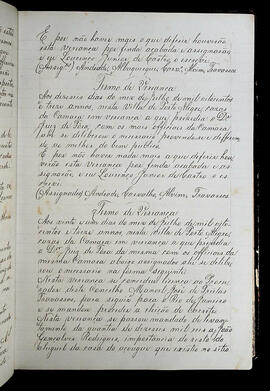 E por não haver mais a que diferir houverão
esta vereança por finda acabada e assignarão
e eu Lourenço Junior de Castro o escrevi.
(Assig.os) Andrade, Albuquerque, Carv.o, Alvim, Travassos
Termo de Vereança
Aos dezeseis dias do mez de Julho de mil oitocentos
e treze annos, nesta Villa de Porto Alegre, cazas
da Camara em vereança a que prezidia o Dr.
Juiz de Fora, com os officiaes da Camara
nella se deliberou o necessario provendo-se e diferin-
do os melhor do bem publico.
E por não haver nada mais a que diferir houve-
rão esta vereança por finda acabada e assi-
gnarão, e eu Lourenço Junior de Castro o es-
crevi.
(Assignados) Andrade, Carvalho, Alvim, Travassos.
Termo de Vereança
Aos vinte e um dias do mez de Julho de mil oito-
centos e treze annos, nesta Villa de Porto Alegre,
cazas da Camara em vereança a que prezidia
o Dr. Juiz de Fora da mesma com os officiaes da
mesma Camara abaixo assignados nella se delibe-
rou o necessario na forma seguinte:
Nesta vereança se concedeu licença ao Procu-
rador deste Conselho Manoel José de Freitas
Travassos, para seguir para o Rio de Janeiro
e se mandou proceder a eleição de
Nesta vereança se passou mandado de levan-
tamento da quantia de dezeseis mil reis a João
Gonçalves Rodrigues, importancia do resto do
aluguel da caza do açougue que existe no sitio